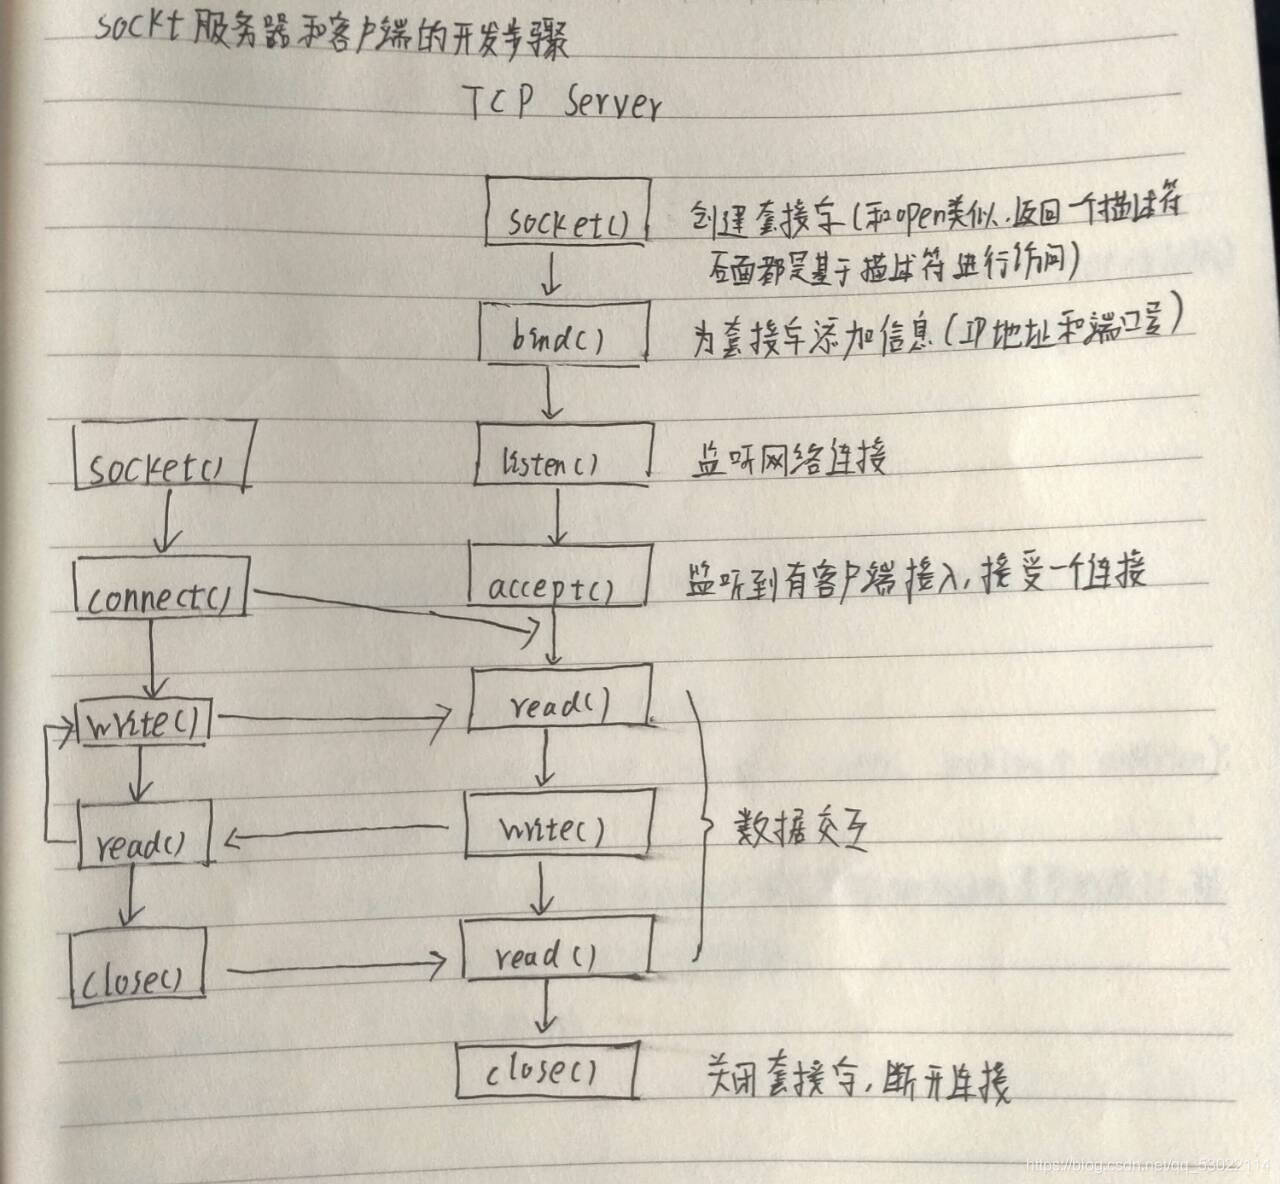 sockt服务器和客户端的开发步骤
TCP Server
socket()
创建套接字(和open类似.返回一个描述符
后面都是基于描述符进行访问)
bind()
为套接字添加信息(IP地址和端口号)
socket()
listen()
监听网络连接
connect()
accept()
监听到有客户端接入,接受一个连接
write()
read()
read()
write()
数据交互
close()
read()
close()
关闭套接字,断开连接
https://blog.csdn.net/qq_53022114